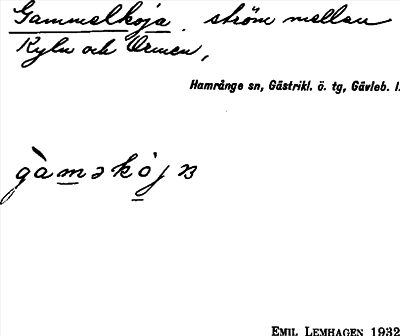 Gammelkoja. ström mellan
Kyln och Ormen,
Hamrånge sn, Gästrikl. ö. tg, Gävleb. l.
EMIL LEMHAGEN 1932